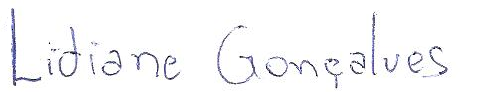 Lidiane Gonçalves